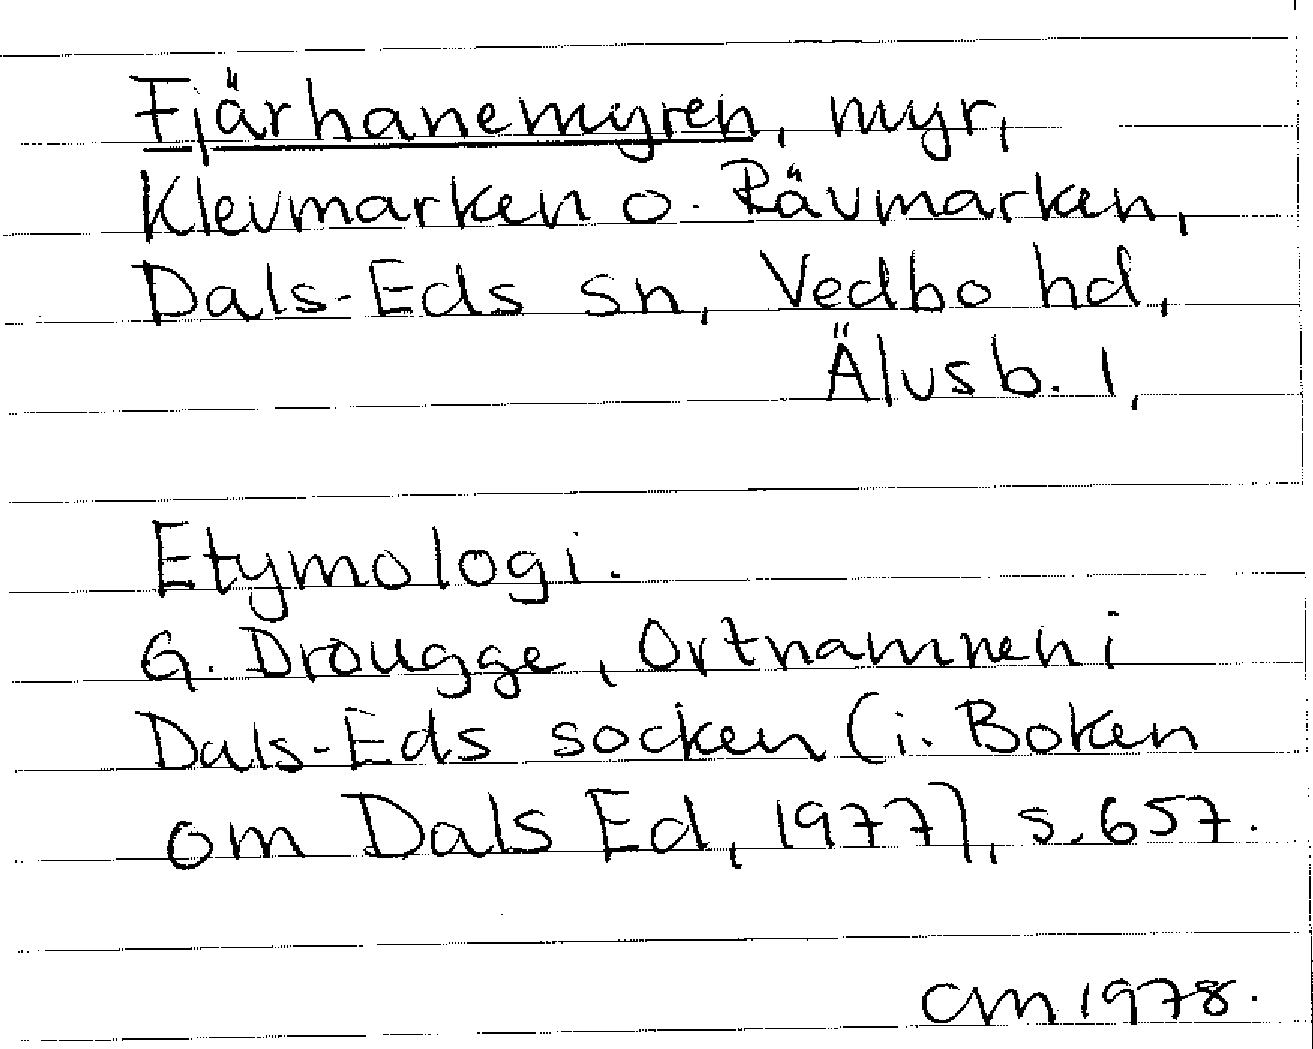 Fjärhanemyren, myr,
Klevmarken o. Rävmarken,
Dals-Eds sn, Vedbo hd,
Älvsb. l,
Etymologi.
G. Drougge, Ortnamnen i
Dals-Eds socken (i. Boken
om Dals Ed, 1977), s. 657.
CM 1978.